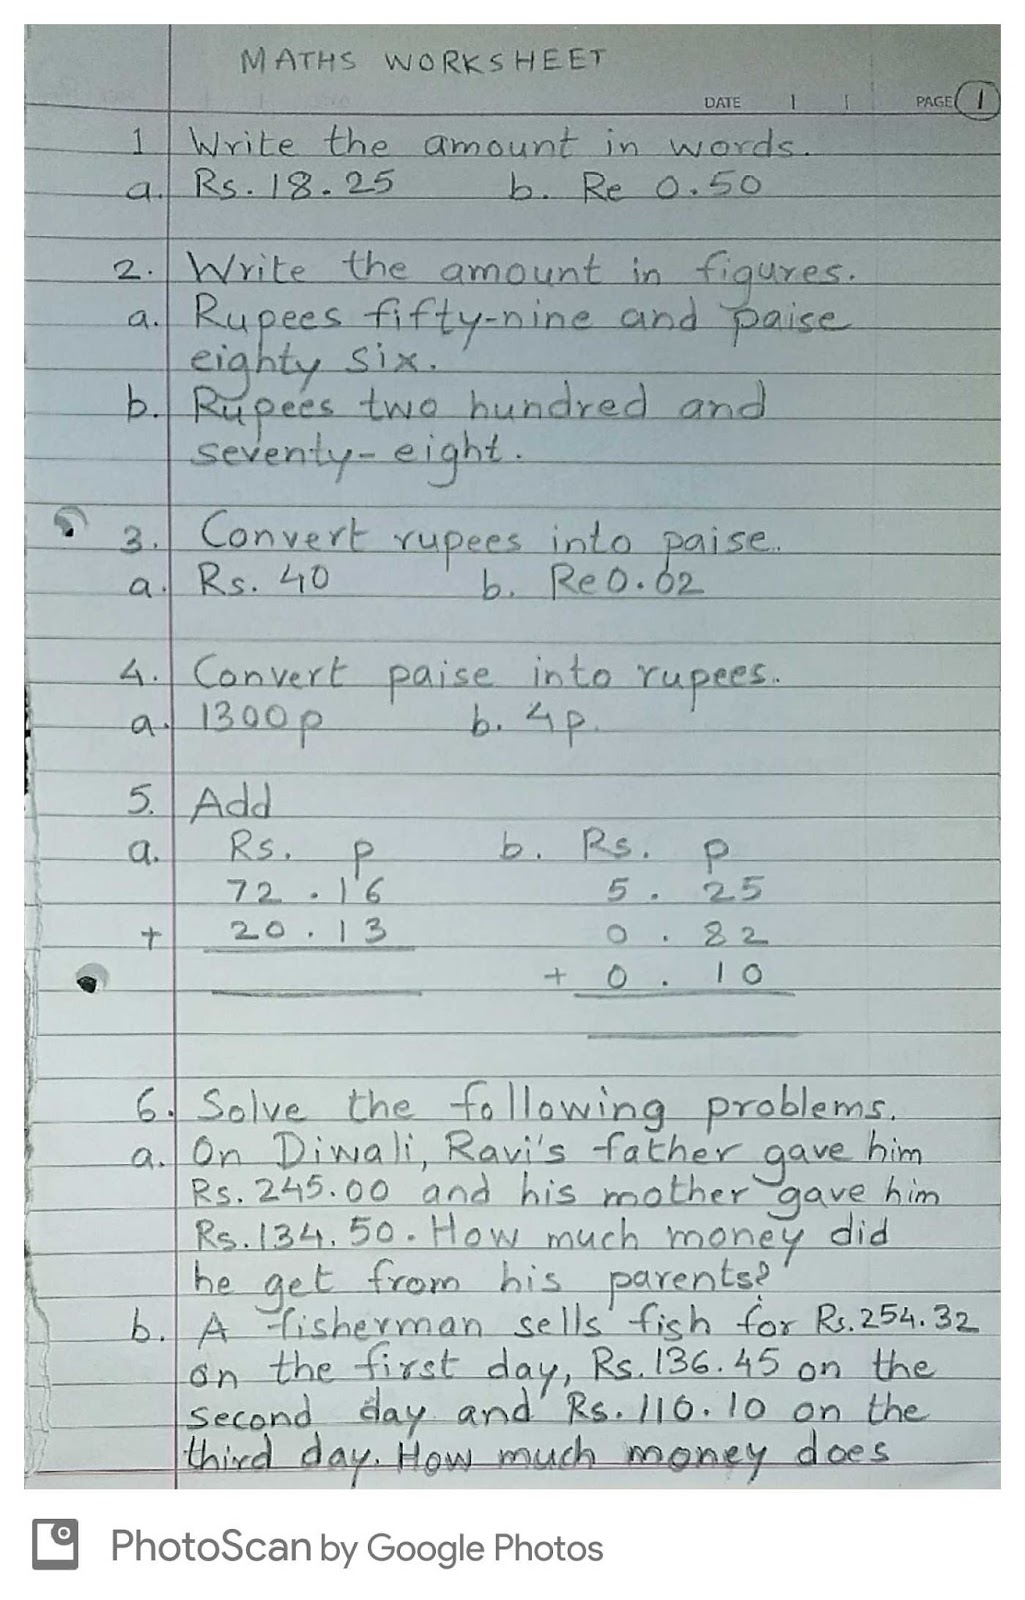 MATHS WORKSHEET
DATE PAGE 1
1 Write the amount in words.
a. Rs. 18.25 b. Re 0.50
2. Write the amount in figures.
a. Rupees fifty-nine and paise
eighty six.
b. Rupees two hundred and
seventy-eight.
3. Convert rupees into paise.
a. Rs. 40 b. Re 0.02
4. Convert paise into rupees.
a. 1300p b. 4p.
5. Add
a. Rs. p b. Rs. p
72 . 16 5 . 25
+ 20 . 13 0 . 82
+ 0 . 10
6. Solve the following problems.
a. On Diwali, Ravi's father gave him
Rs. 245.00 and his mother gave him
Rs. 134.50. How much money did
he get from his parents?
b. A fisherman sells fish for Rs. 254.32
on the first day, Rs. 136.45 on the
second day and Rs. 110.10 on the
third day. How much money does
PhotoScan by Google Photos